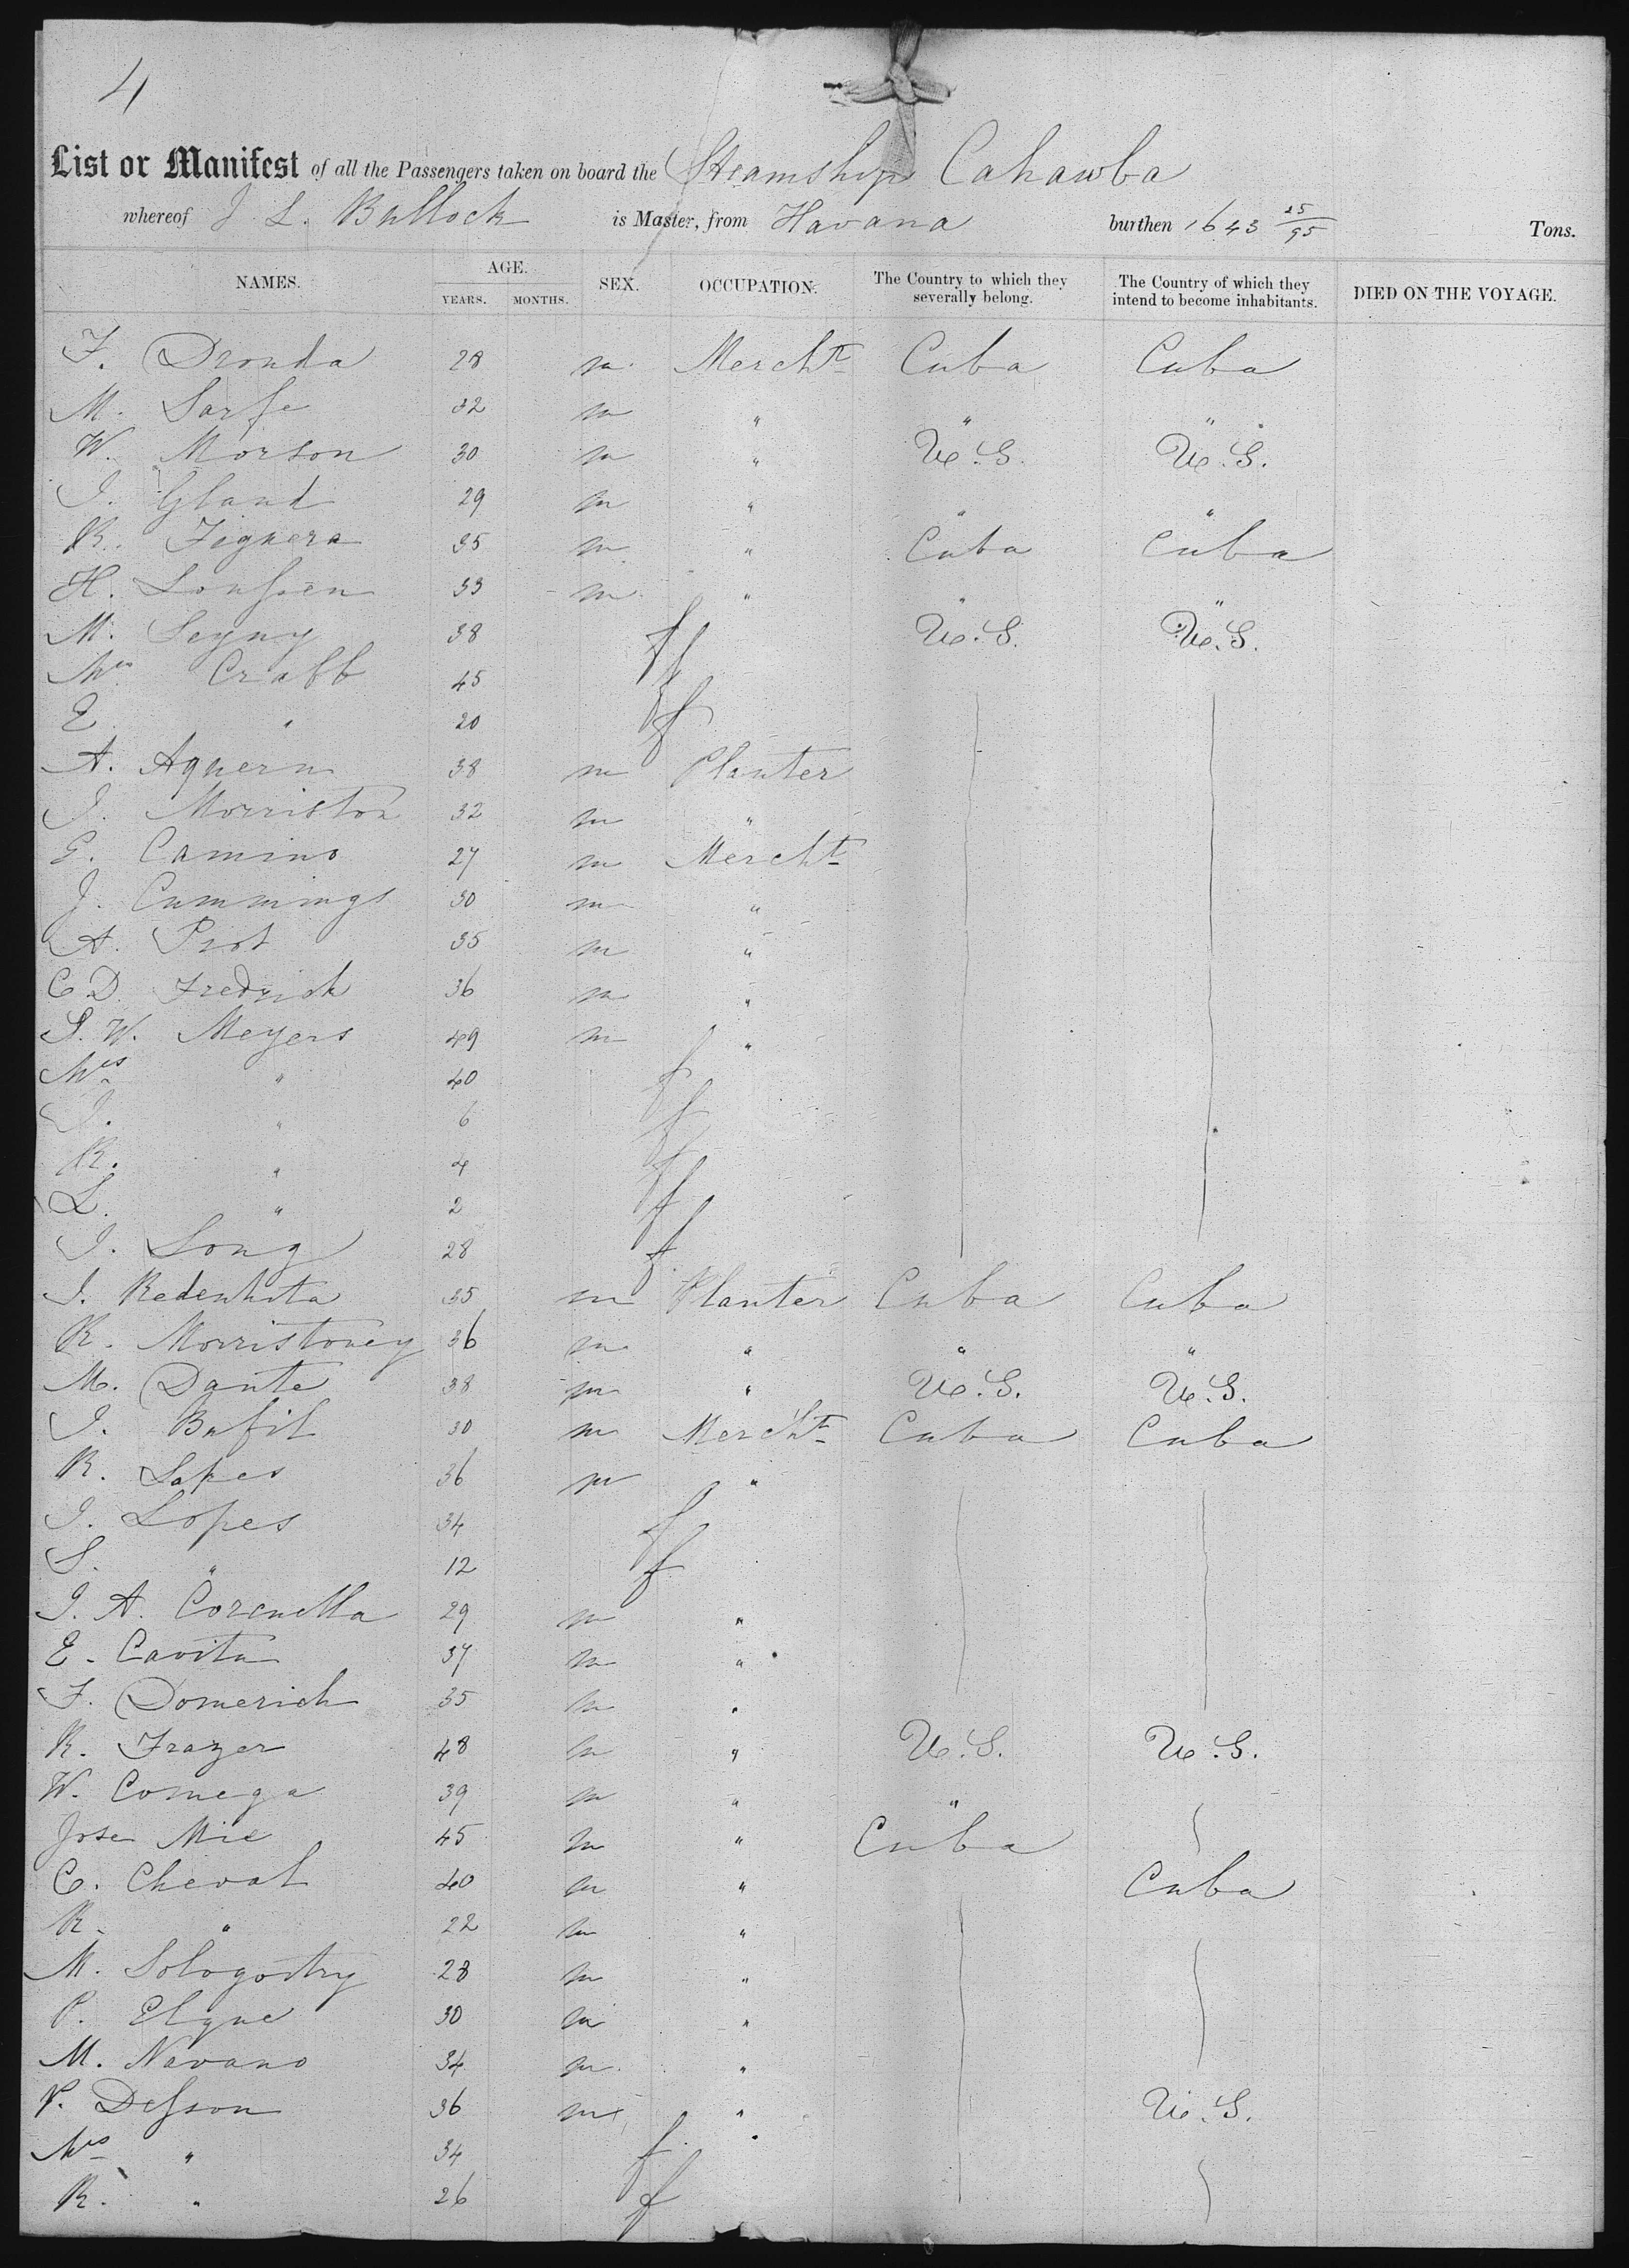 4
List or Manifest of all the Passengers taken on board the Steamship Cahawba
whereof J L. Bullock is Master, from Havana burthen 1643 25/95 Tons.
NAMES. AGE. YEARS. MONTHS. SEX. OCCUPATION. The Country to which they severally belong. The Country of which they intend to become inhabitants. DIED ON THE VOYAGE.
F. Dronda 28 m Mercht Cuba Cuba
M. Sarfe 32 m " " "
W. Morson 30 m " U.S. U.S.
J. Gland 29 m " " "
R. Figuera 35 m " Cuba Cuba
H. 33 m " " "
M. Segny 38 f U.S. U.S.
Mrs Crabb 45 f
E " 20 f
A. Aguern 38 m Planter
J. Morriston 32 m "
G. Camino 27 m Mercht
J. Cummings 30 m "
A. Prot 35 m "
C. D. Fredrick 36 m "
S. W. Meyers 49 m "
Mrs " 40 f
J. " 6 f
R. " 4 f
L. " 2 f
J. Long 28 f
J. Redenhota 35 m Planter Cuba Cuba
R. Morristoney 36 m " " "
M. Dante 38 m " U.S. U.S.
J. Bufil 30 m Mercht Cuba Cuba
R. 36 m "
J. Lopes 34 f
S. " 12 f
J. A. Corenella 29 m "
E. Cavita 37 m "
F. Domerich 35 m "
R. Frazer 48 m " U.S. U.S.
W. Comega 39 m " "
Jose Mie 45 m " Cuba
C. Cheval 40 m " Cuba
R. " 22 m "
M. Sologostry 28 m "
P. Elgue 30 m "
M. Navano 34 m "
P. Desson 36 m " U.S.
Mrs " 34 f "
R. " 26 f